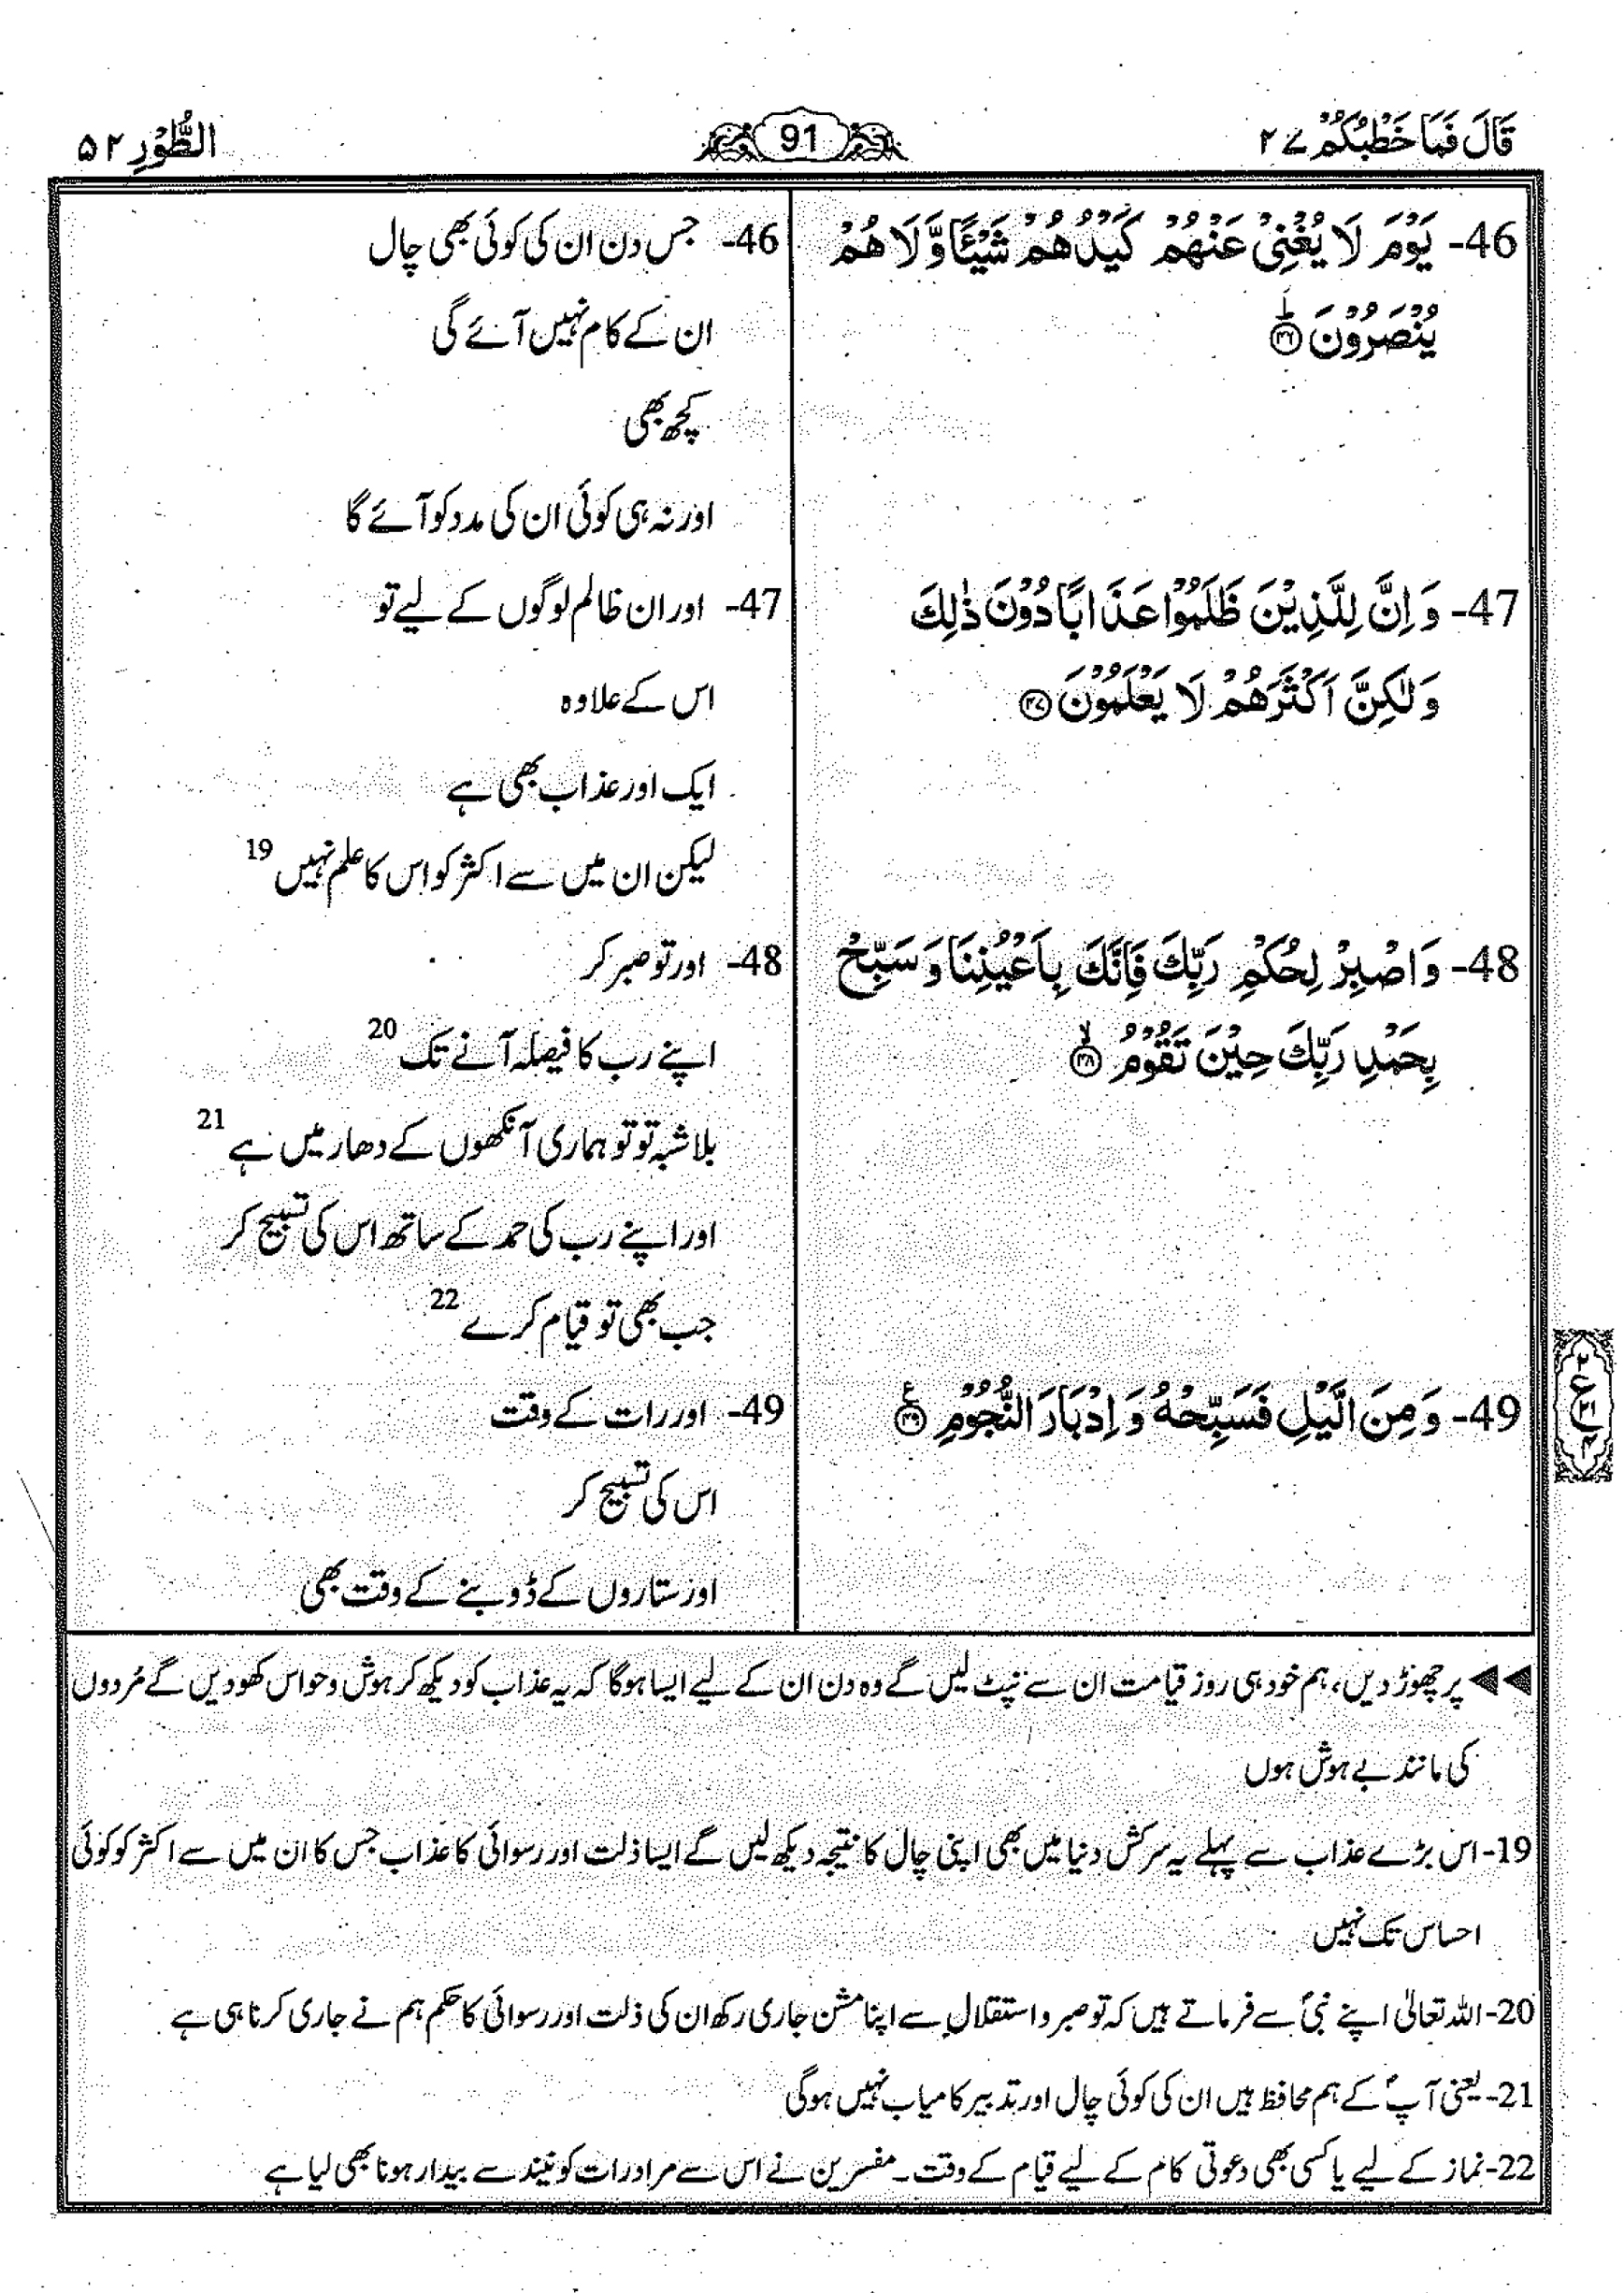 قَالَ فَمَا خَطْبُكُمْ ۲۷
91
الطُّوْرِ ۵۲
46- يَوْمَ لَا يُغْنِيْ عَنْهُمْ كَيْدُهُمْ شَيْـًٔا وَّلَا هُمْ
يُنْصَرُوْنَ ؕ ۴۶
47- وَ اِنَّ لِلَّذِيْنَ ظَلَمُوْا عَذَابًا دُوْنَ ذٰلِكَ
وَلٰكِنَّ اَكْثَرَهُمْ لَا يَعْلَمُوْنَ ۴۷
48- وَاصْبِرْ لِحُكْمِ رَبِّكَ فَاِنَّكَ بِاَعْيُنِنَا وَ سَبِّحْ
بِحَمْدِ رَبِّكَ حِيْنَ تَقُوْمُ ۙ ۴۸
49- وَ مِنَ الَّيْلِ فَسَبِّحْهُ وَ اِدْبَارَ النُّجُوْمِ ۴۹ ع
46- جس دن ان کی کوئی بھی چال
ان کے کام نہیں آئے گی
کچھ بھی
اور نہ ہی کوئی ان کی مدد کو آئے گا
47- اور ان ظالم لوگوں کے لیے تو
اس کے علاوہ
ایک اور عذاب بھی ہے
لیکن ان میں سے اکثر کو اس کا علم نہیں 19
48- اور تو صبر کر
اپنے رب کا فیصلہ آنے تک 20
بلا شبہ تو تو ہماری آنکھوں کے دھار میں ہے 21
اور اپنے رب کی حمد کے ساتھ اس کی تسبیح کر
جب بھی تو قیام کرے 22
49- اور رات کے وقت
اس کی تسبیح کر
اور ستاروں کے ڈوبنے کے وقت بھی
۲
ع
۲۱
۴
◀◀ پر چھوڑ دیں، ہم خود ہی روز قیامت ان سے نپٹ لیں گے وہ دن ان کے لیے ایسا ہوگا کہ یہ عذاب کو دیکھ کر ہوش و حواس کھو دیں گے مُردوں
کی مانند بے ہوش ہوں
19- اس بڑے عذاب سے پہلے یہ سرکش دنیا میں بھی اپنی چال کا نتیجہ دیکھ لیں گے ایسا ذلت اور رسوائی کا عذاب جس کا ان میں سے اکثر کو کوئی
احساس تک نہیں
20- اللہ تعالیٰ اپنے نبیؐ سے فرماتے ہیں کہ تو صبر و استقلال سے اپنا مشن جاری رکھ ان کی ذلت اور رسوائی کا حکم ہم نے جاری کرنا ہی ہے
21- یعنی آپؐ کے ہم محافظ ہیں ان کی کوئی چال اور تدبیر کامیاب نہیں ہوگی
22- نماز کے لیے یا کسی بھی دعوتی کام کے لیے قیام کے وقت۔ مفسرین نے اس سے مراد رات کو نیند سے بیدار ہونا بھی لیا ہے